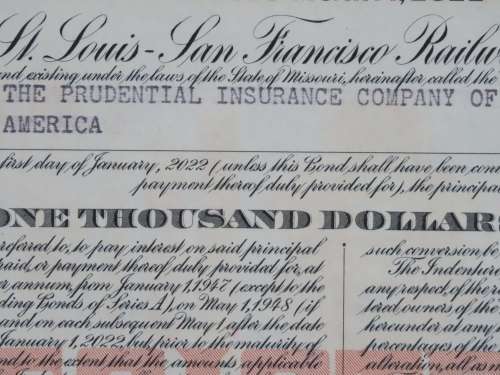 St. Louis-San Francisco Railw
and existing under the laws of the State of Missouri, hereinafter called the
THE PRUDENTIAL INSURANCE COMPANY OF
AMERICA
first day of January, 2022 (unless this Bond shall have been con
payment thereof duly provided for), the principal
ONE THOUSAND DOLLARS
referred to, to pay interest on said principal
paid, or payment thereof duly provided for, at
er annum, from January 1, 1947 (except to the
ding Bonds of Series A), on May 1, 1948 (if
and on each subsequent May 1 after the date
January 1, 2022, but prior to the maturity of
nd to the extent that the amounts applicable
such conversion be
The Indentur
any respect, of the r
tered owners of the
hereunder at any
percentages of the
alteration, all as m